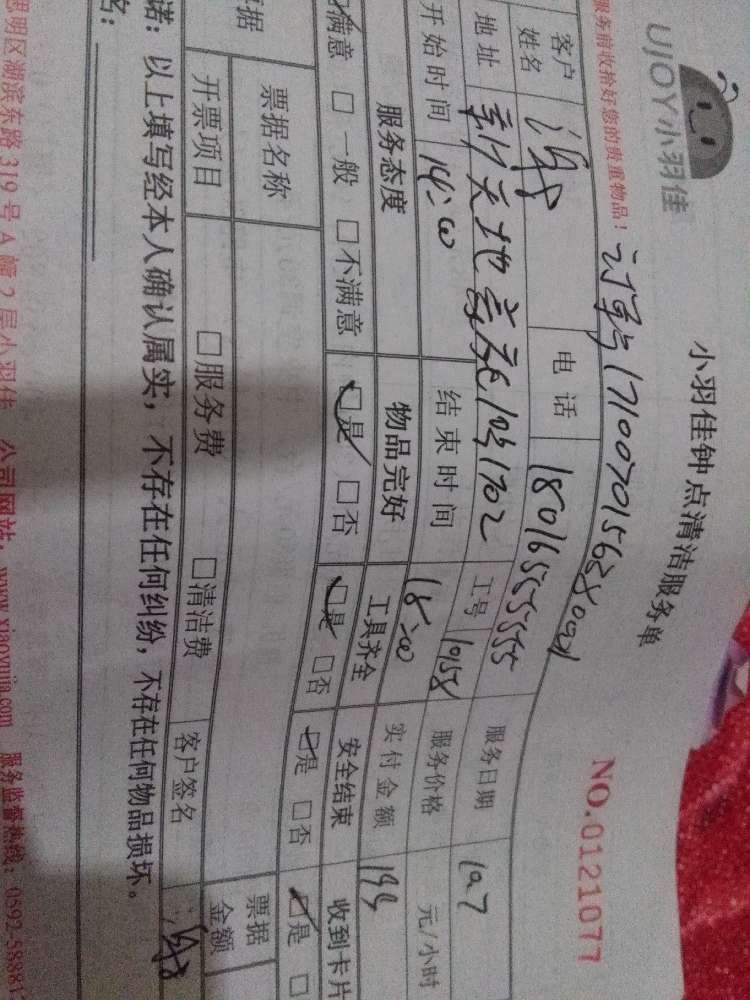 UJOY小羽佳
小羽佳钟点清洁服务单
NO.0121077
服务前收拾好您的贵重物品!
订单号
客户姓名
电话
18016555555
服务日期
10.7
地址
新天地 1702
工号
1058
服务价格
元/小时
开始时间
14:00
结束时间
18:00
实付金额
服务态度
物品完好
工具齐全
安全结束
收到卡片
满意 □一般 □不满意
□是 □否
□是 □否
□是 □否
□是 □
票据名称
票据金额
开票项目
□服务费
□清洁费
客户签名
诺:以上填写经本人确认属实,不存在任何纠纷,不存在任何物品损坏。
名:
思明区湖滨东路319号A幢2层小羽佳 公司网站:www.xiaoyujia.com 服务监督热线:0592-588817